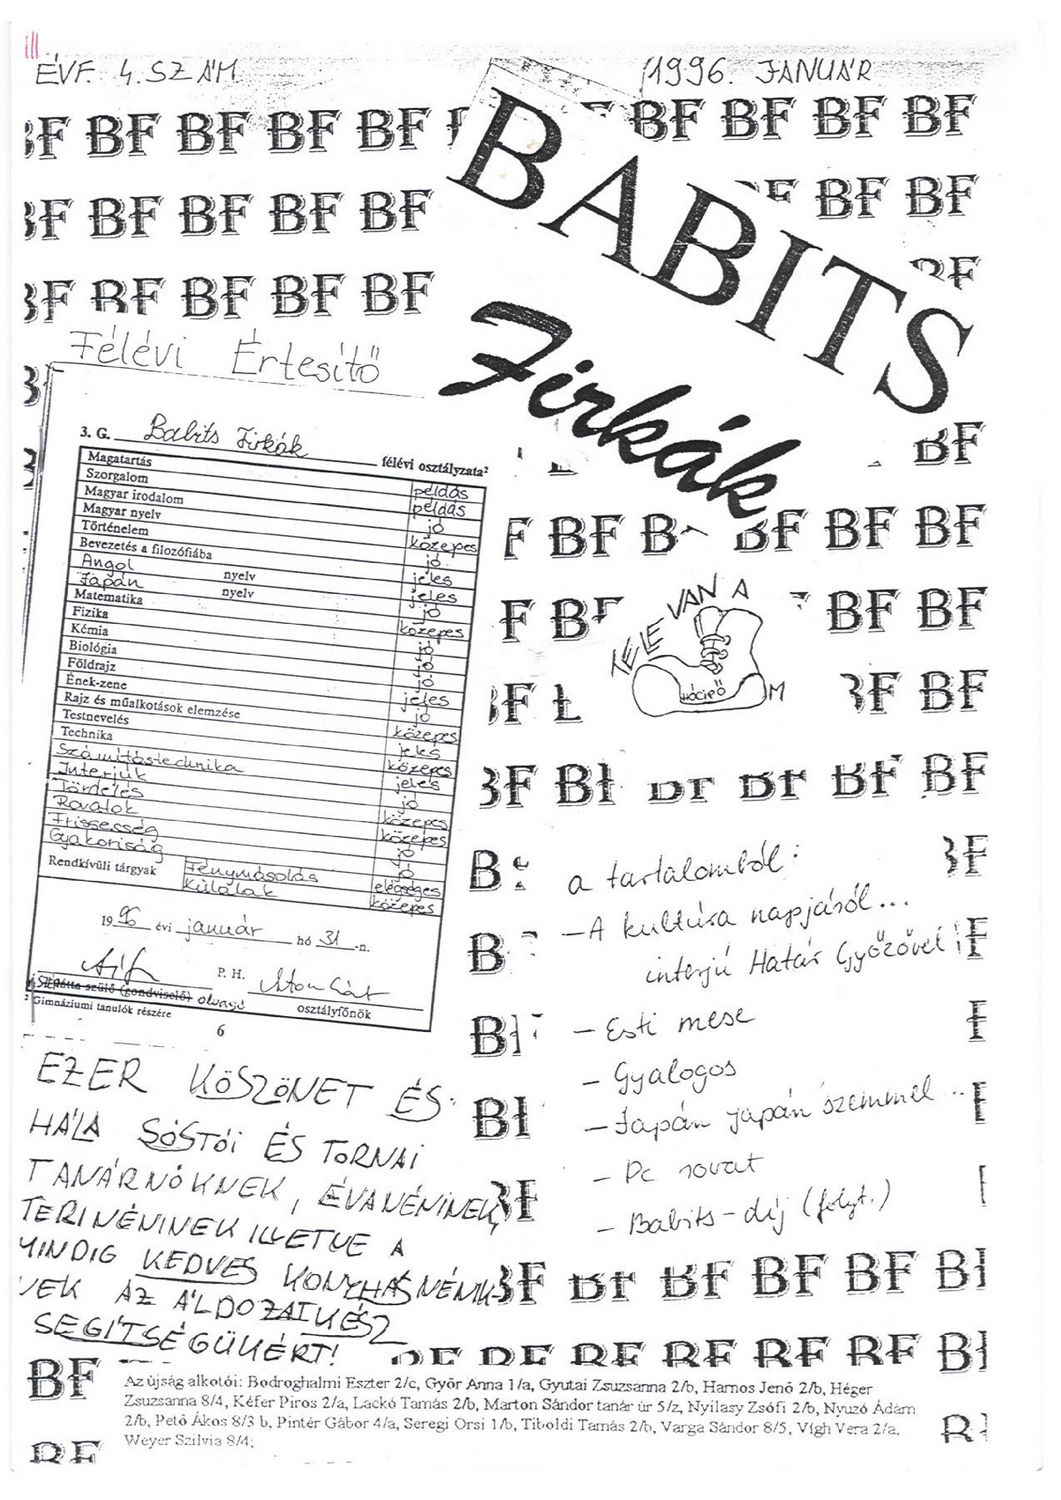 III.
ÉVF. 4. SZÁM
1996. JANUÁR
BABITS
Firkák
Félévi Értesítő
3. G. Babits Firkák félévi osztályzata²
Magatartás példás
Szorgalom példás
Magyar irodalom jó
Magyar nyelv közepes
Történelem jó
Bevezetés a filozófiába jeles
Angol nyelv jeles
Japán nyelv jó
Matematika közepes
Fizika jó
Kémia jó
Biológia jó
Földrajz jeles
Ének-zene jó
Rajz és műalkotások elemzése közepes
Testnevelés jeles
Technika közepes
Számítástechnika jeles
Interjúk jó
Tördelés közepes
Rovatok közepes
Frissesség jó
Gyakoriság jó
Rendkívüli tárgyak Fénymásolás elégséges
Külalak közepes
1996 évi január hó 31-n.
P. H.
szülő (gondviselő) olvasó
osztályfőnök
² Gimnáziumi tanulók részére
6
TELE VAN A
HÓCIPŐ
M
a tartalomból:
– A kultúra napjáról...
interjú Határ Győzővel!
– Esti mese
– Gyalogos
– Japán japán szemmel...
– Pc rovat
– Babits-díj (folyt.)
EZER KÖSZÖNET ÉS
HÁLA SÓSTÓI ÉS TORNAI
TANÁRNŐKNEK, ÉVANÉNINEK,
TERINÉNINEK ILLETVE A
MINDIG KEDVES KONYHÁSNÉNIK-
NEK AZ ÁLDOZATKÉSZ
SEGÍTSÉGÜKÉRT!
Az újság alkotói: Bodroghalmi Eszter 2/c, Győr Anna 1/a, Gyutai Zsuzsanna 2/b, Hamos Jenő 2/b, Héger
Zsuzsanna 8/4, Kéfer Piros 2/a, Lackó Tamás 2/b, Marton Sándor tanár úr 5/z, Nyilasy Zsófi 2/b, Nyuzó Ádám
2/b, Pető Ákos 8/3 b, Pintér Gábor 4/a, Seregi Orsi 1/b, Tiboldi Tamás 2/b, Varga Sándor 8/5, Vígh Vera 2/a,
Weyer Szilvia 8/4;